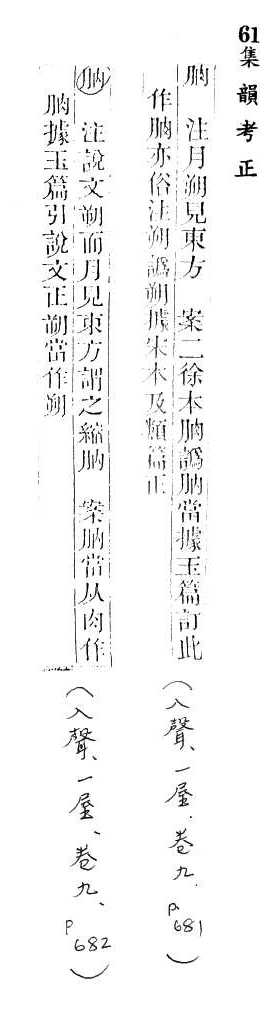 61
集韻考正
朒 注月朔見東方 案二徐本朒譌肭當據玉篇訂此
作朒亦俗注朔譌朔據宋本及類篇正
(入聲、一屋、卷九、P.681)
朒 注說文朔而月見東方謂之縮朒 案朒當从肉作
朒據玉篇引說文正朔當作朔
(入聲、一屋、卷九、P682)